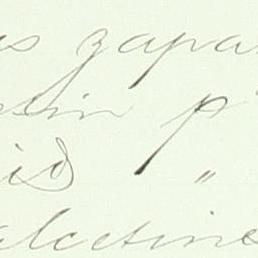 as zapa
tin p
id "
alcetine